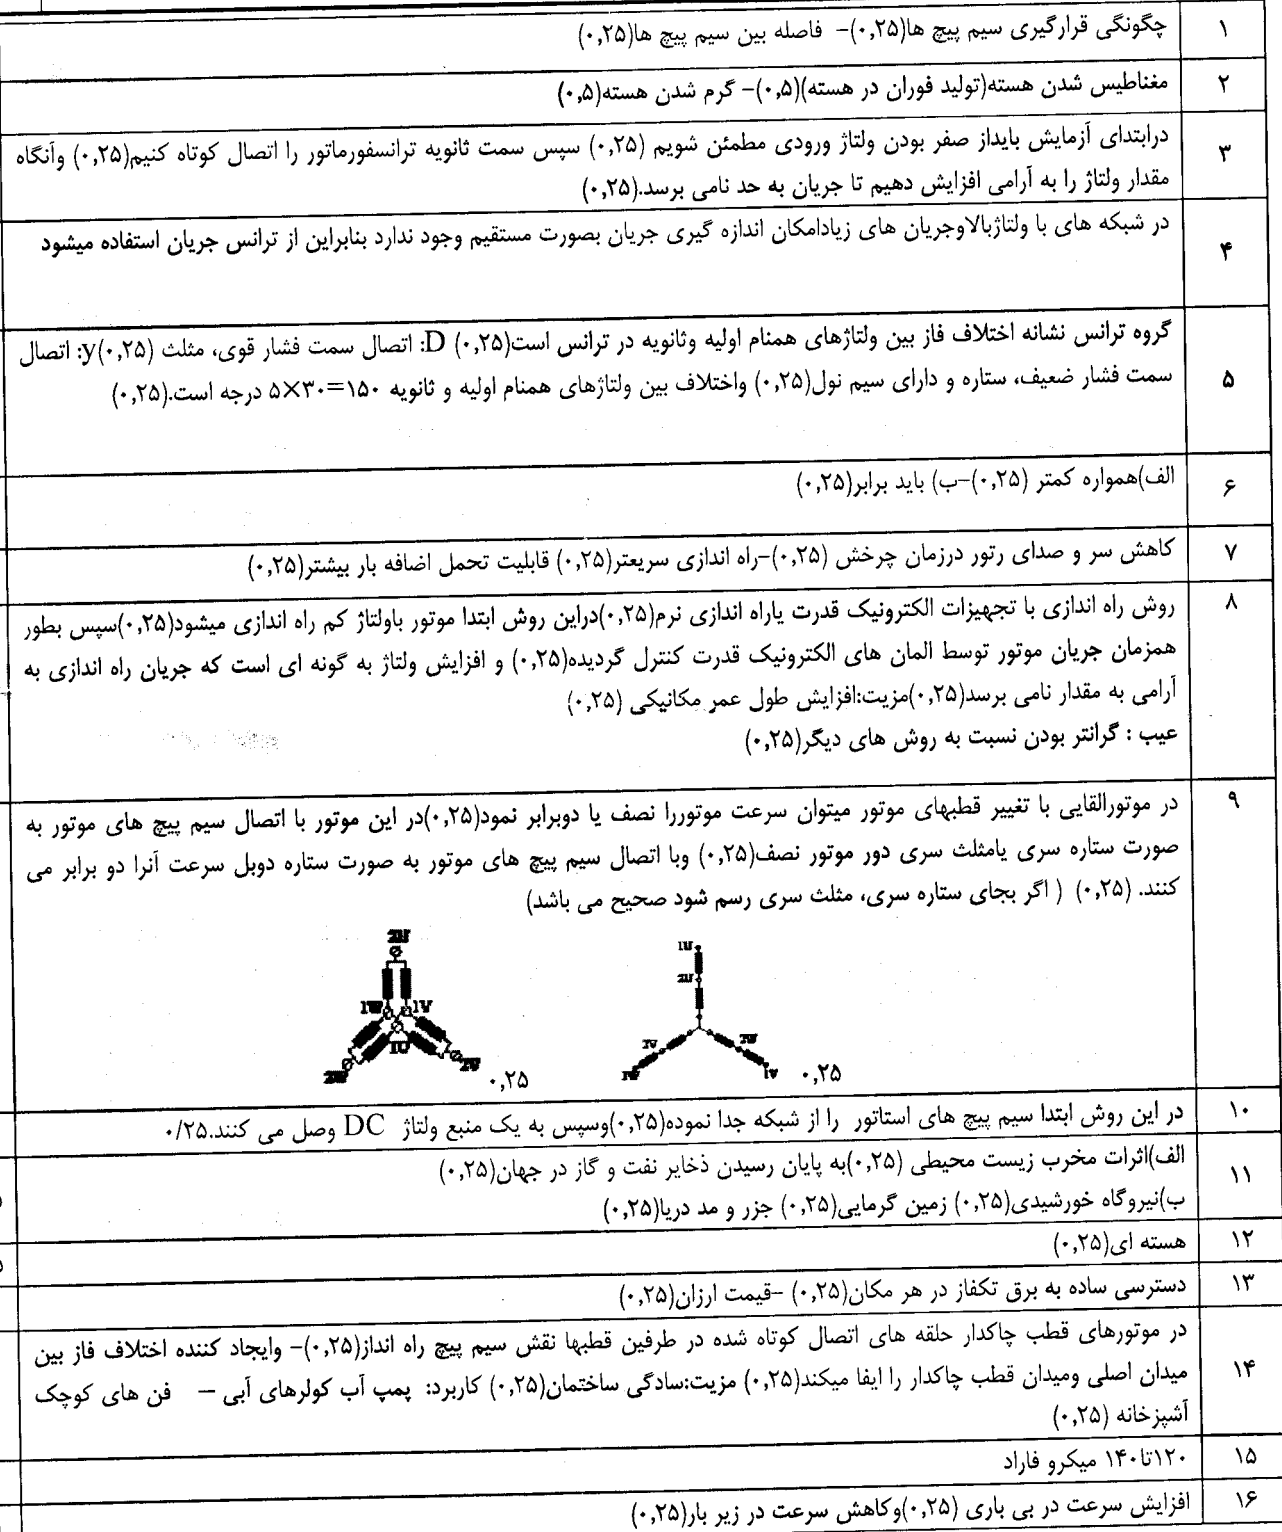 ۱ چگونگی قرارگیری سیم پیچ ها(۰,۲۵)- فاصله بین سیم پیچ ها(۰,۲۵)
۲ مغناطیس شدن هسته(تولید فوران در هسته)(۰,۵)- گرم شدن هسته(۰,۵)
۳ درابتدای آزمایش بایداز صفر بودن ولتاژ ورودی مطمئن شویم (۰,۲۵) سپس سمت ثانویه ترانسفورماتور را اتصال کوتاه کنیم(۰,۲۵) وآنگاه
مقدار ولتاژ را به آرامی افزایش دهیم تا جریان به حد نامی برسد.(۰,۲۵)
۴ در شبکه های با ولتاژبالاوجریان های زیادامکان اندازه گیری جریان بصورت مستقیم وجود ندارد بنابراین از ترانس جریان استفاده میشود
گروه ترانس نشانه اختلاف فاز بین ولتاژهای همنام اولیه وثانویه در ترانس است(۰,۲۵) D: اتصال سمت فشار قوی، مثلث (۰,۲۵)y: اتصال
۵ سمت فشار ضعیف، ستاره و دارای سیم نول(۰,۲۵) واختلاف بین ولتاژهای همنام اولیه و ثانویه ۱۵۰=۳۰×۵ درجه است.(۰,۲۵)
۶ الف)همواره کمتر (۰,۲۵)-ب) باید برابر(۰,۲۵)
۷ کاهش سر و صدای رتور درزمان چرخش (۰,۲۵)-راه اندازی سریعتر(۰,۲۵) قابلیت تحمل اضافه بار بیشتر(۰,۲۵)
۸ روش راه اندازی با تجهیزات الکترونیک قدرت یاراه اندازی نرم(۰,۲۵)دراین روش ابتدا موتور باولتاژ کم راه اندازی میشود(۰,۲۵)سپس بطور
همزمان جریان موتور توسط المان های الکترونیک قدرت کنترل گردیده(۰,۲۵) و افزایش ولتاژ به گونه ای است که جریان راه اندازی به
آرامی به مقدار نامی برسد(۰,۲۵)مزیت:افزایش طول عمر مکانیکی (۰,۲۵)
عیب : گرانتر بودن نسبت به روش های دیگر(۰,۲۵)
۹ در موتورالقایی با تغییر قطبهای موتور میتوان سرعت موتوررا نصف یا دوبرابر نمود(۰,۲۵)در این موتور با اتصال سیم پیچ های موتور به
صورت ستاره سری یامثلث سری دور موتور نصف(۰,۲۵) وبا اتصال سیم پیچ های موتور به صورت ستاره دوبل سرعت آنرا دو برابر می
کنند. (۰,۲۵) ( اگر بجای ستاره سری، مثلث سری رسم شود صحیح می باشد)
1U
2U
2V 2W
1W 1V ۰,۲۵
2U
1W 1V
1U
2W 2V ۰,۲۵
۱۰ در این روش ابتدا سیم پیچ های استاتور را از شبکه جدا نموده(۰,۲۵)وسپس به یک منبع ولتاژ DC وصل می کنند.۰/۲۵
۱۱ الف)اثرات مخرب زیست محیطی (۰,۲۵)به پایان رسیدن ذخایر نفت و گاز در جهان(۰,۲۵)
ب)نیروگاه خورشیدی(۰,۲۵) زمین گرمایی(۰,۲۵) جزر و مد دریا(۰,۲۵)
۱۲ هسته ای(۰,۲۵)
۱۳ دسترسی ساده به برق تکفاز در هر مکان(۰,۲۵) -قیمت ارزان(۰,۲۵)
در موتورهای قطب چاکدار حلقه های اتصال کوتاه شده در طرفین قطبها نقش سیم پیچ راه انداز(۰,۲۵)- وایجاد کننده اختلاف فاز بین
۱۴ میدان اصلی ومیدان قطب چاکدار را ایفا میکند(۰,۲۵) مزیت:سادگی ساختمان(۰,۲۵) کاربرد: پمپ آب کولرهای آبی – فن های کوچک
آشپزخانه (۰,۲۵)
۱۵ ۱۲۰تا۱۴۰ میکرو فاراد
۱۶ افزایش سرعت در بی باری (۰,۲۵)وکاهش سرعت در زیر بار(۰,۲۵)